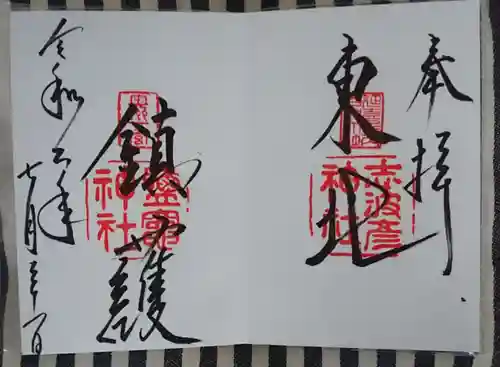 奉拝
東北
志波彦
神社
鎮護
鹽竈
神社
令和六年
七月三十一日